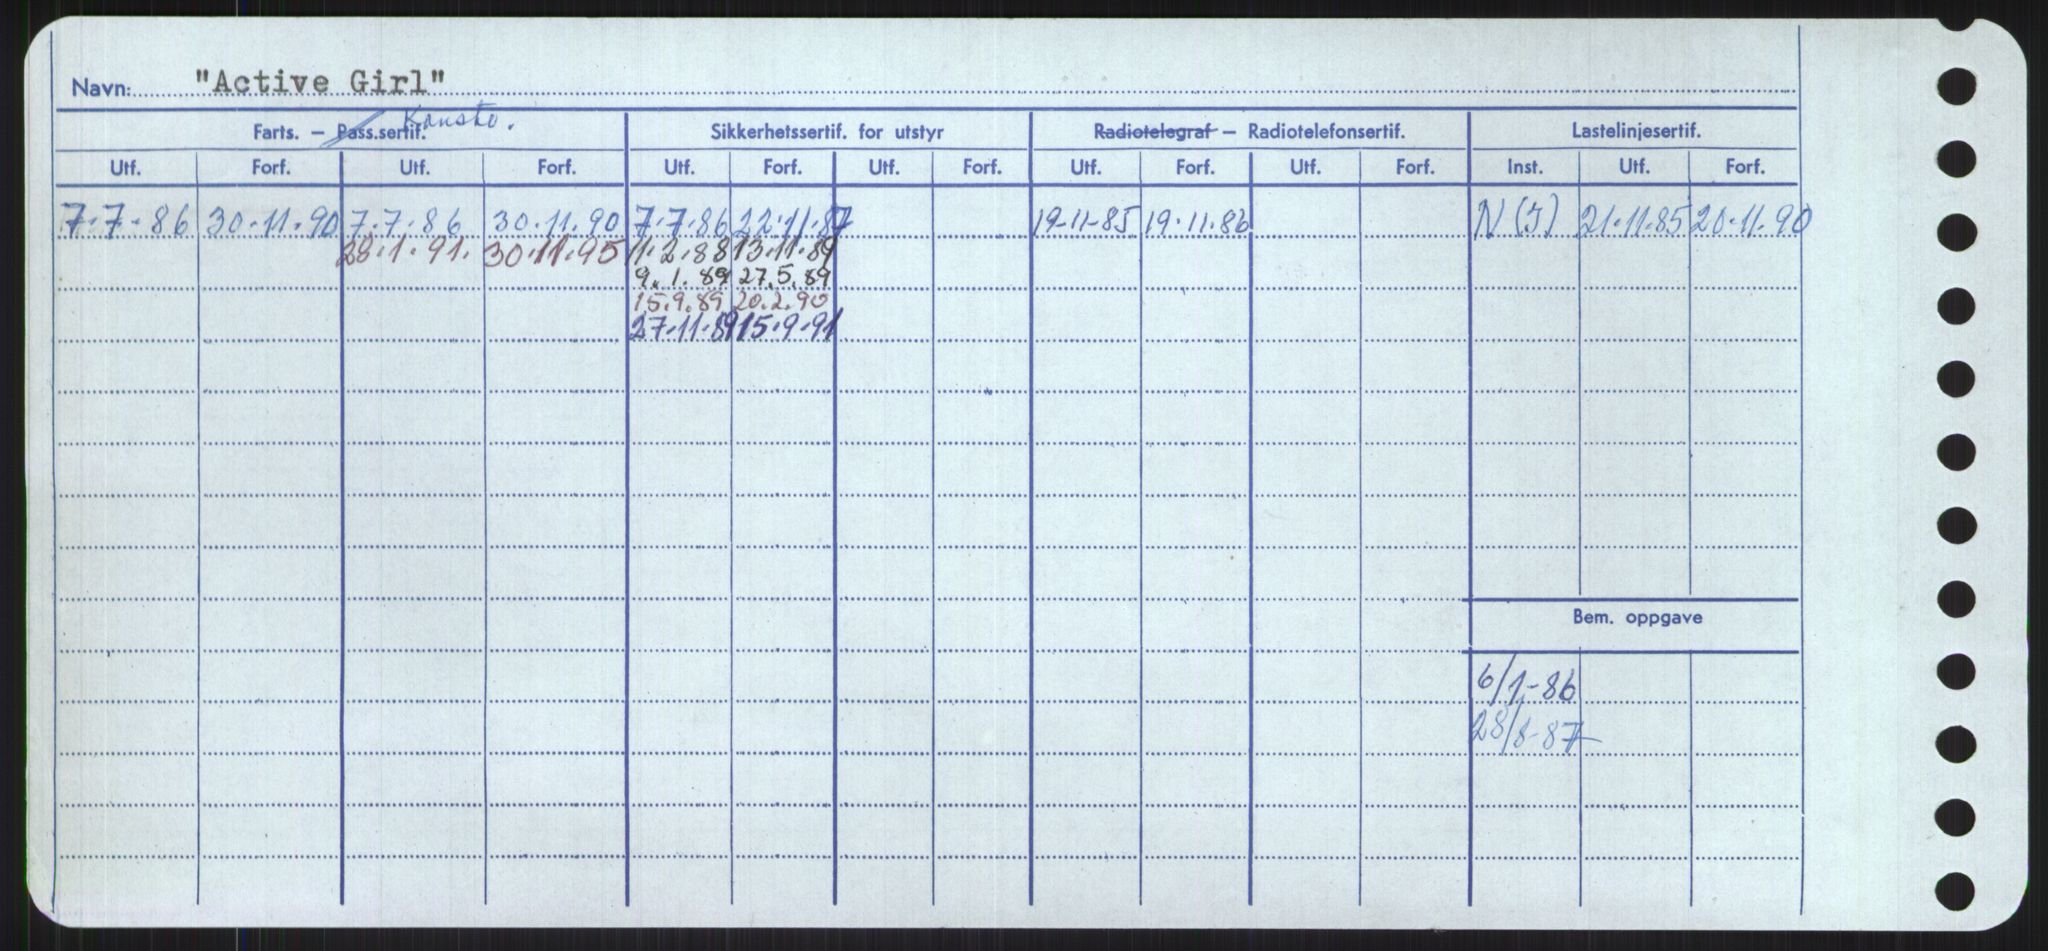 Navn: "Active Girl"
Konstr.
Farts. – Pass.sertif. Sikkerhetssertif. for utstyr Radiotelegraf – Radiotelefonsertif. Lastelinjesertif.
Utf. Forf. Utf. Forf. Utf. Forf. Utf. Forf. Utf. Forf. Utf. Forf. Inst. Utf. Forf.
7.7.86 30.11.90 7.7.86 30.11.90 7.7.86 22.11.87 19-11-85 19.11.86 N (I) 21.11.85 20.11.90
28.1.91. 30.11.95 11.2.88 13.11.89
9.1.89 27.5.89
15.9.89 20.2.90
27.11.89 15.9.91
Bem. oppgave
6/1-86
28/8-87